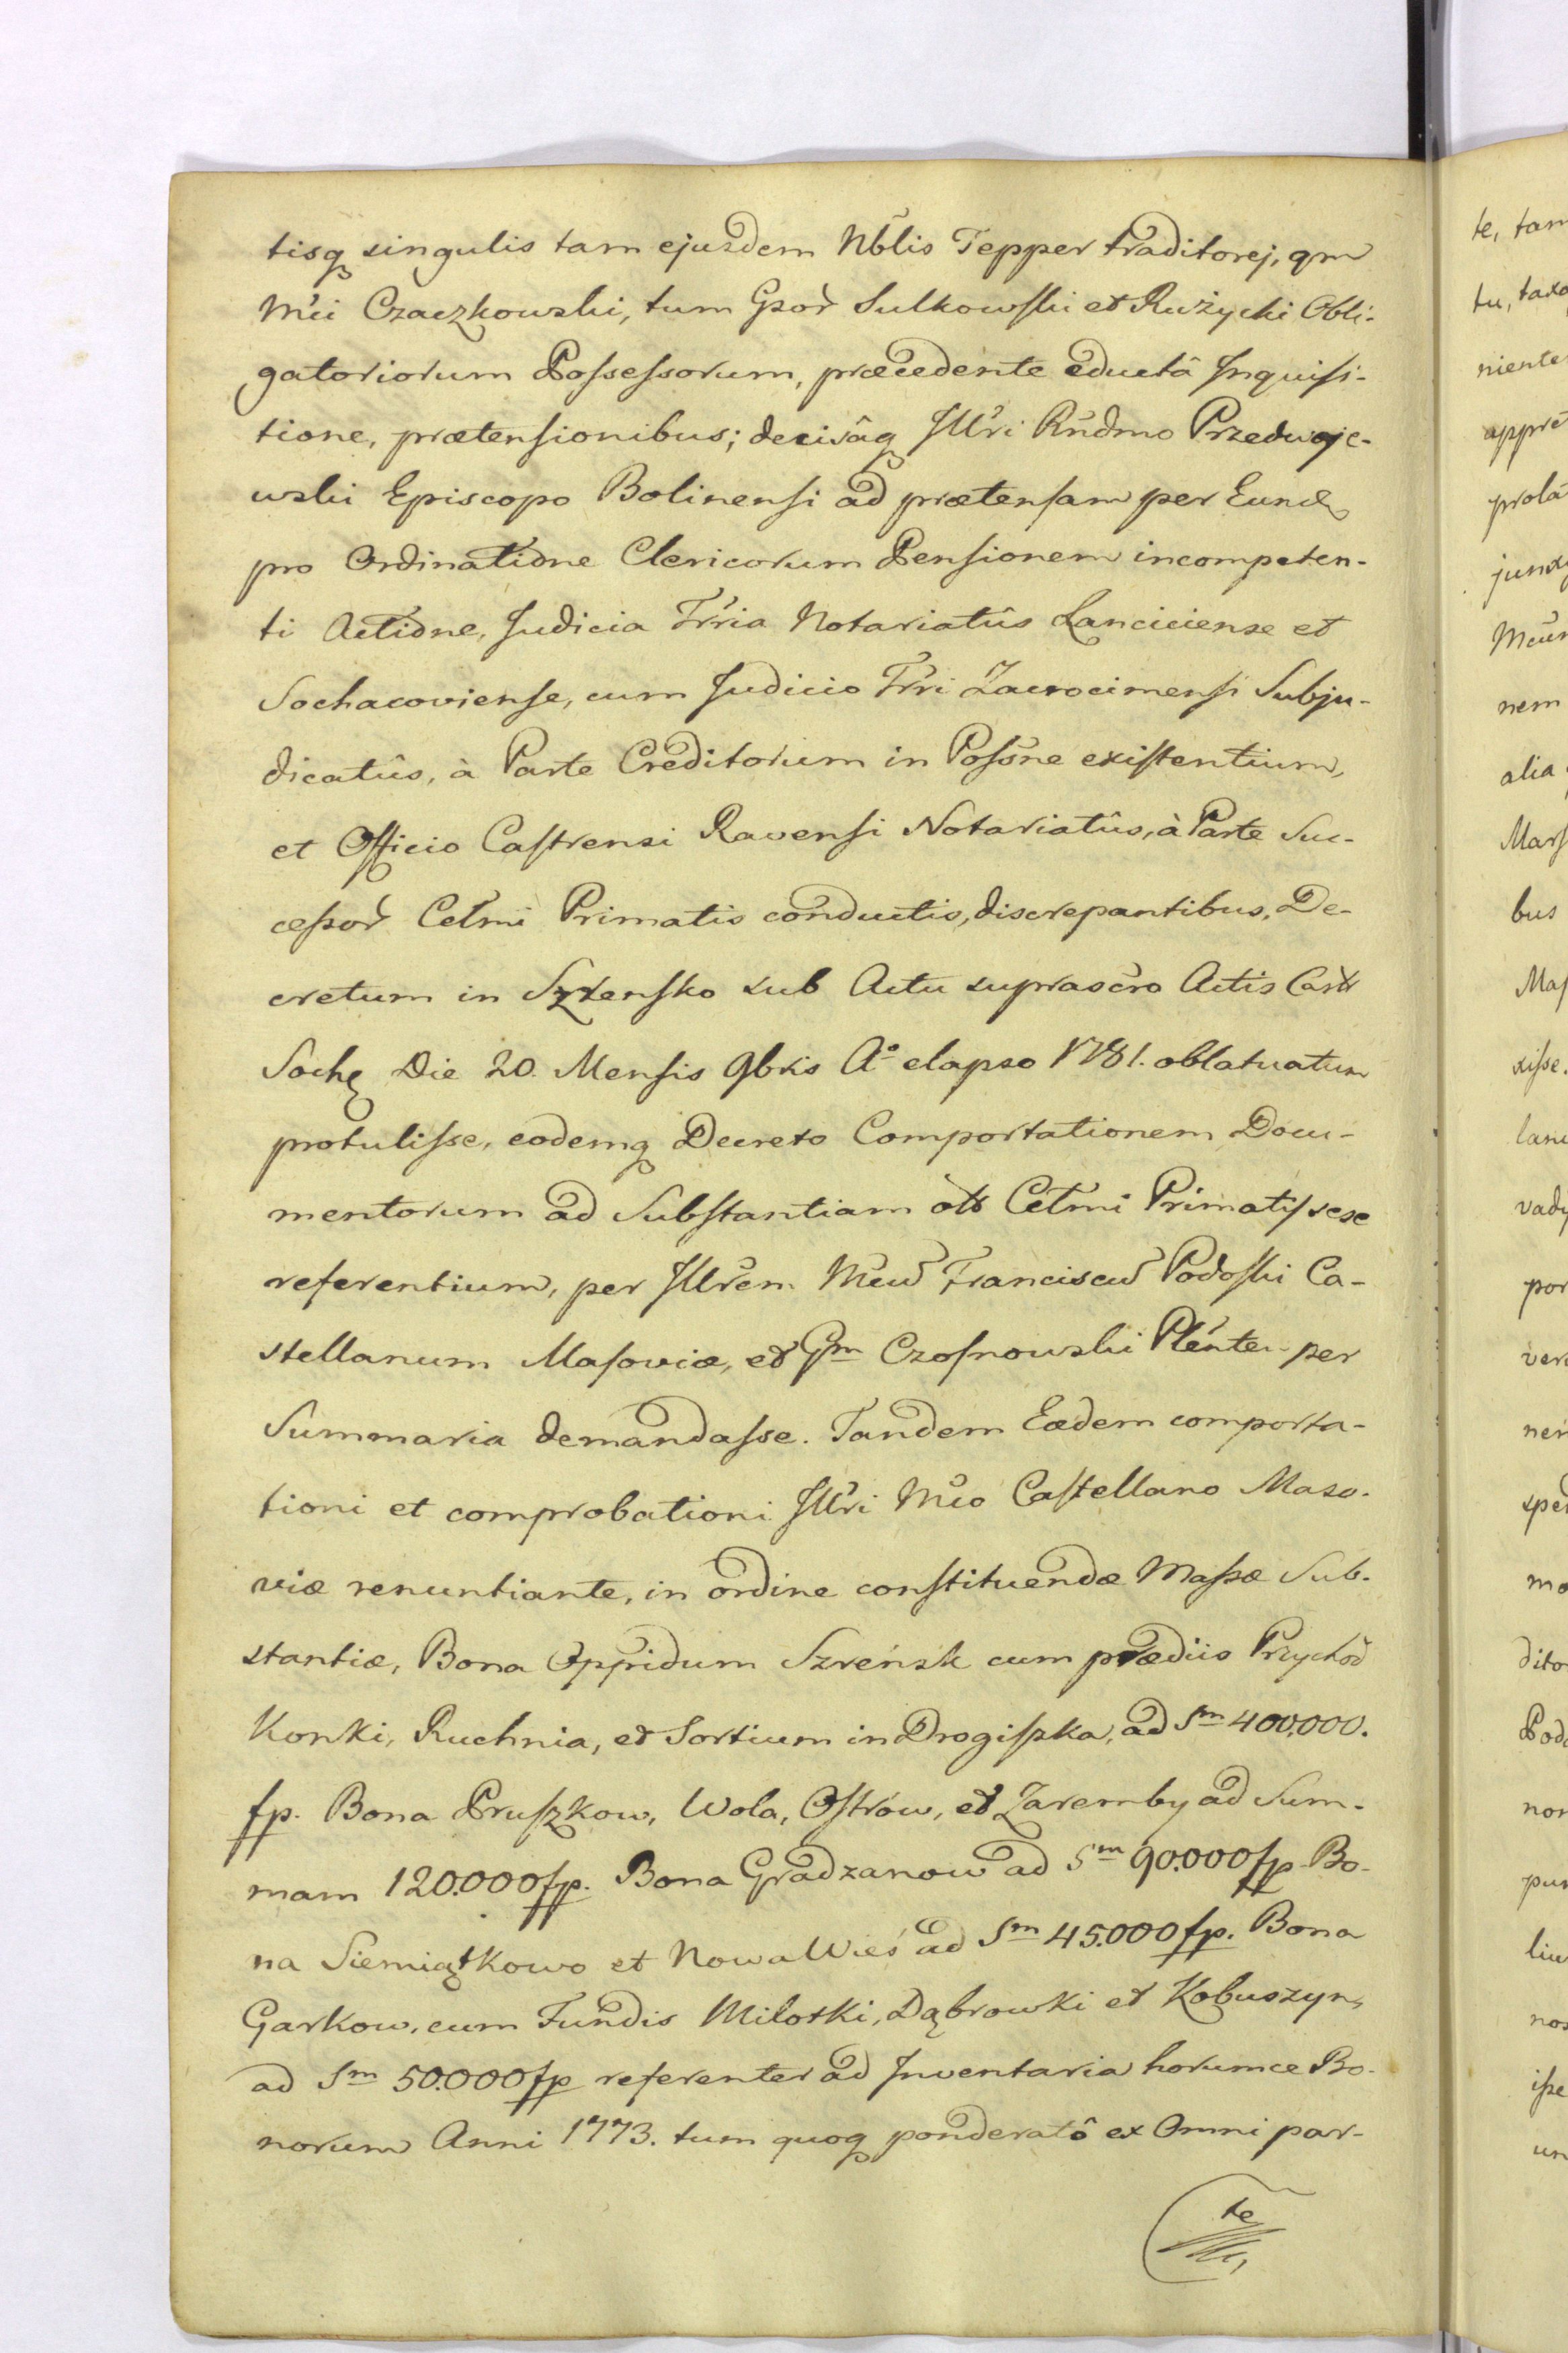 tisq singulis tam ejusdem Nblis Tepper traditorej, qm
Mci Czaczkowski, tum Gsor Sulkowski et Rużycki Obli-
gatoriorum Possessorum, præcedente eductâ Inquisi-
tione, prætensionibus; decisâq Illri Rndmo Przedwoje-
wski Episcopo Bolinensi ad prætensam per Eund
pro Ordinatione Clericorum Pensionem incompeten-
ti Actione, Judicia Trria Notariatûs Lanciciense et
Sochacoviense, cum Judicio Trri Zacrocimensi Subju-
dicatûs, à Parte Creditorum in Possne existentium,
et Officio Castrensi Ravensi Notariatûs, à Parte Suc-
cessor Celmi Primatis conductis, discrepantibus, De-
cretum in Szrensko sub Actu suprascro Actis Castr
Soch Die 20. Mensis 9bris A° elapso 1781. oblatuatum
protulisse, eodemq Decreto Comportationem Docu-
mentorum ad Substantiam olt Celmi Primatis sese
referentium, per Illrem Mcum Franciscum Podoski Ca-
stellanum Masoviæ, et Gm Czosnowski Plenten per
Summaria demandasse. Tandem Eædem comporta-
tioni et comprobationi Illri Mco Castellano Maso-
viæ renuntiante, in ordine constituendæ Massæ Sub-
stantiæ, Bona Oppidum Szreńsk cum prædiis Przychod
Konki, Ruchnia, et Sortium in Drogiszka, ad Sm 400,000.
fp. Bona Pruszkow, Wola, Ostrów, et Zaremby ad Sum-
mam 120.000 fp. Bona Gradzanow ad Sm 90.000 fp. Bo-
na Siemiątkowo et Nowa Wieś ad Sm 45.000 fp. Bona
Garkow, cum Fundis Milotki, Dąbrowki et Kobuszyn,
ad Sm 50.000 fp referenter ad Inventaria horumce Bo-
norum Anni 1773. tum quoq ponderatô ex Omni par-
te